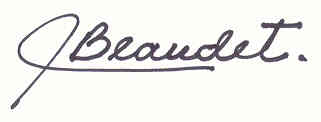 J Beaudet.